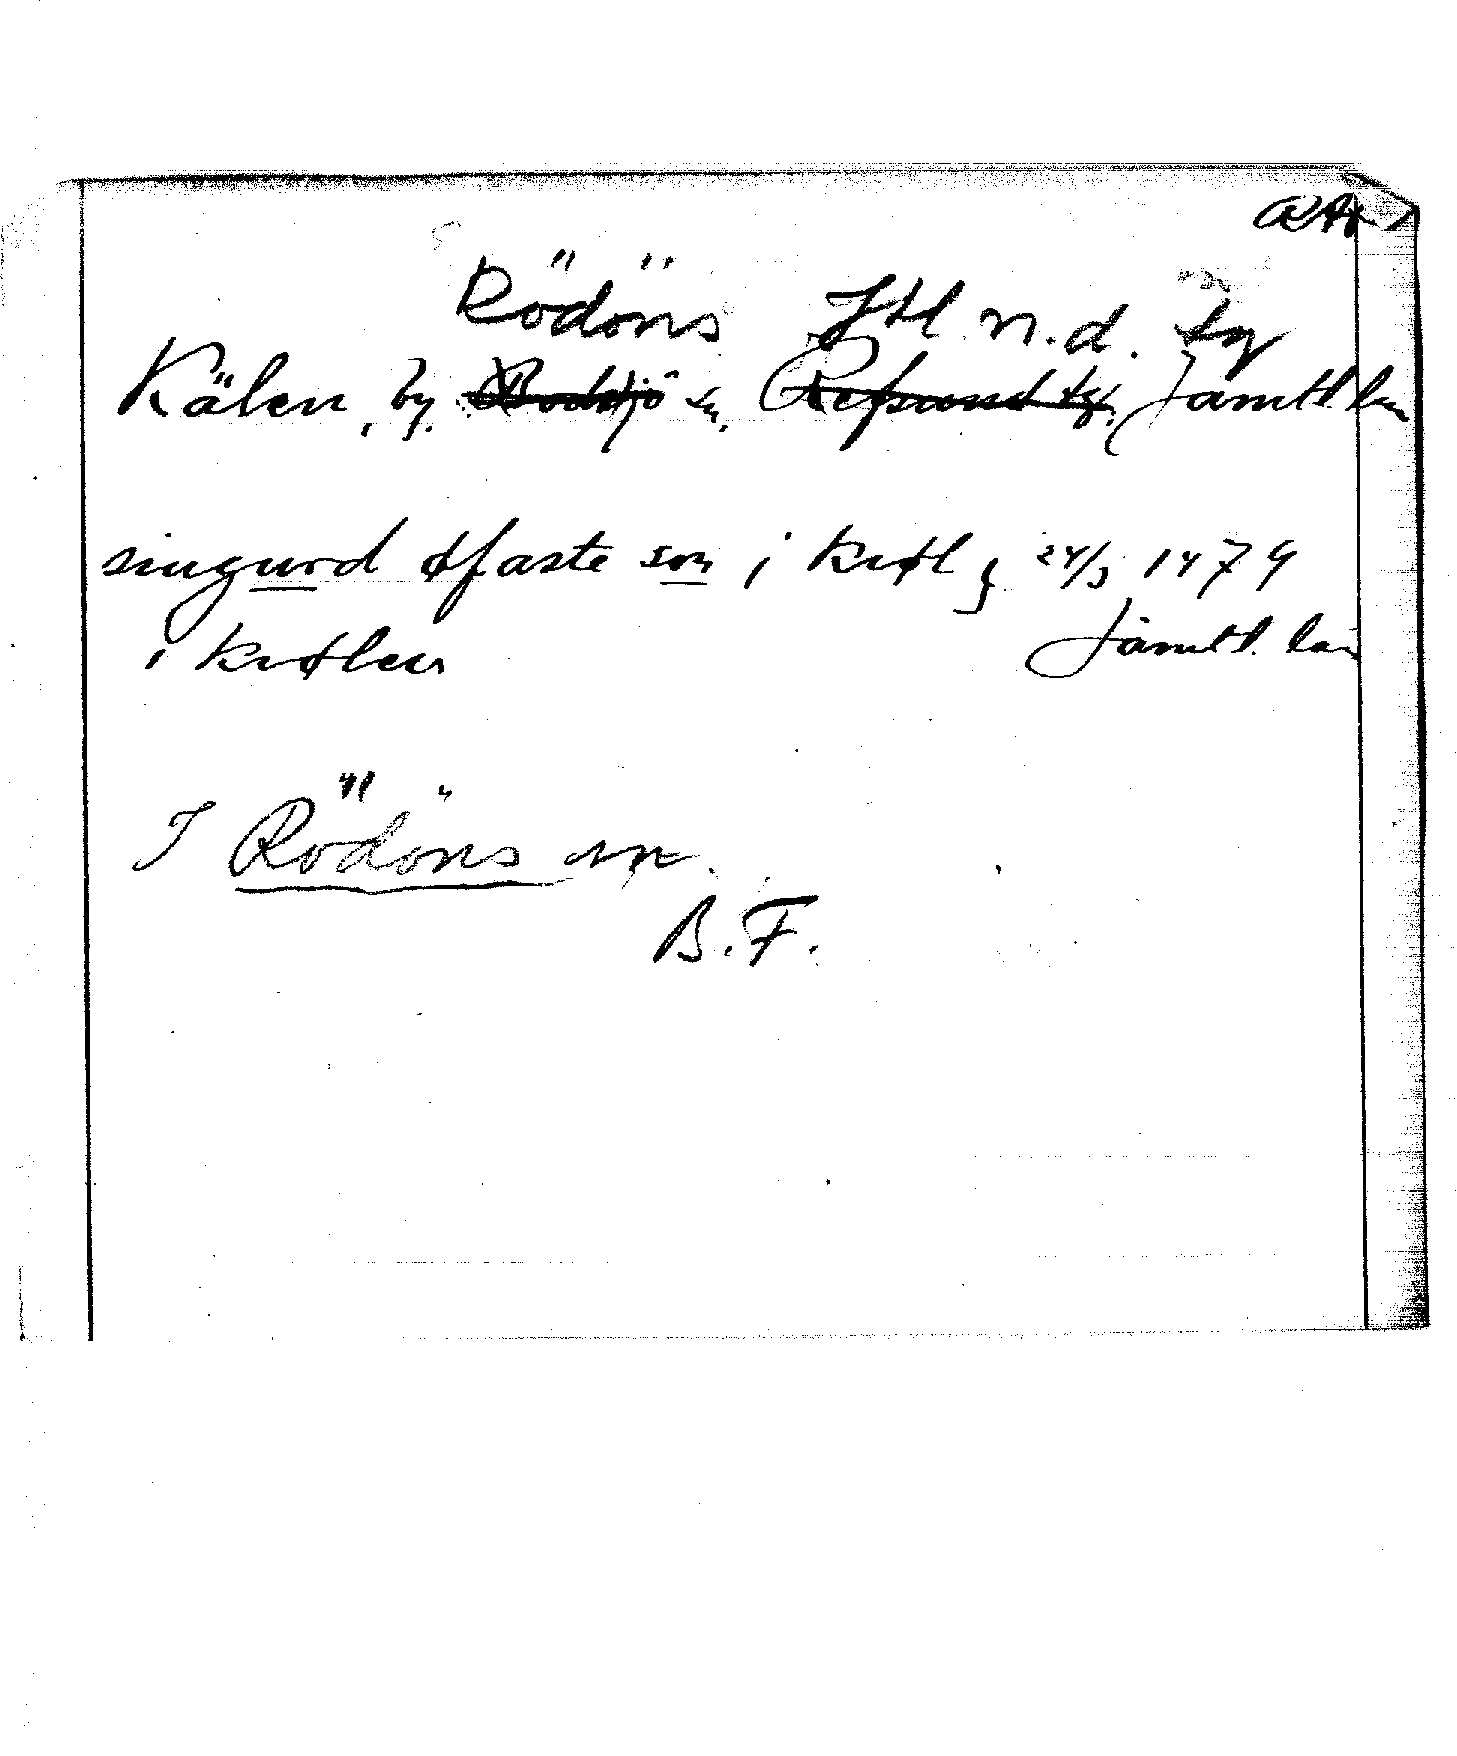 Rödöns Jtl n.d. tg
Kälen, by, Bodsjö sn, Refsund tg, Jämtl. län
singurd ffaste son i kiøl 24/3 1479
i kiølen Jämtl. län
I Rödöns sn.
B.F.